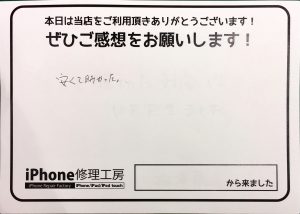 本日は当店をご利用頂きありがとうございます！
ぜひご感想をお願いします！
安くて助かった。
iPhone修理工房
iPhone Repair Factory
iPhone/iPad/iPod touch
から来ました